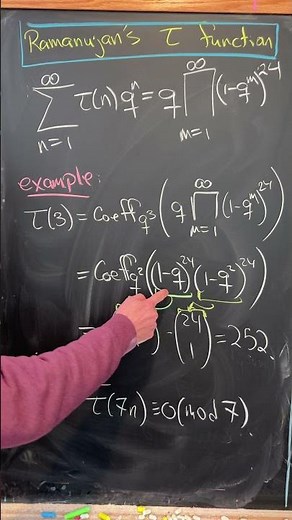 Ramanujan's τ function
∞ ∑ n=1 τ(n) q^n = q ∞ ∏ m=1 (1-q^m)^24
example:
τ(3) = Coeff_q^3 ( q ∞ ∏ m=1 (1-q^m)^24 )
= Coeff_q^2 ( (1-q)^24 (1-q^2)^24 )
= ) - (24 1) = 252
τ(7n) = 0 (mod 7)